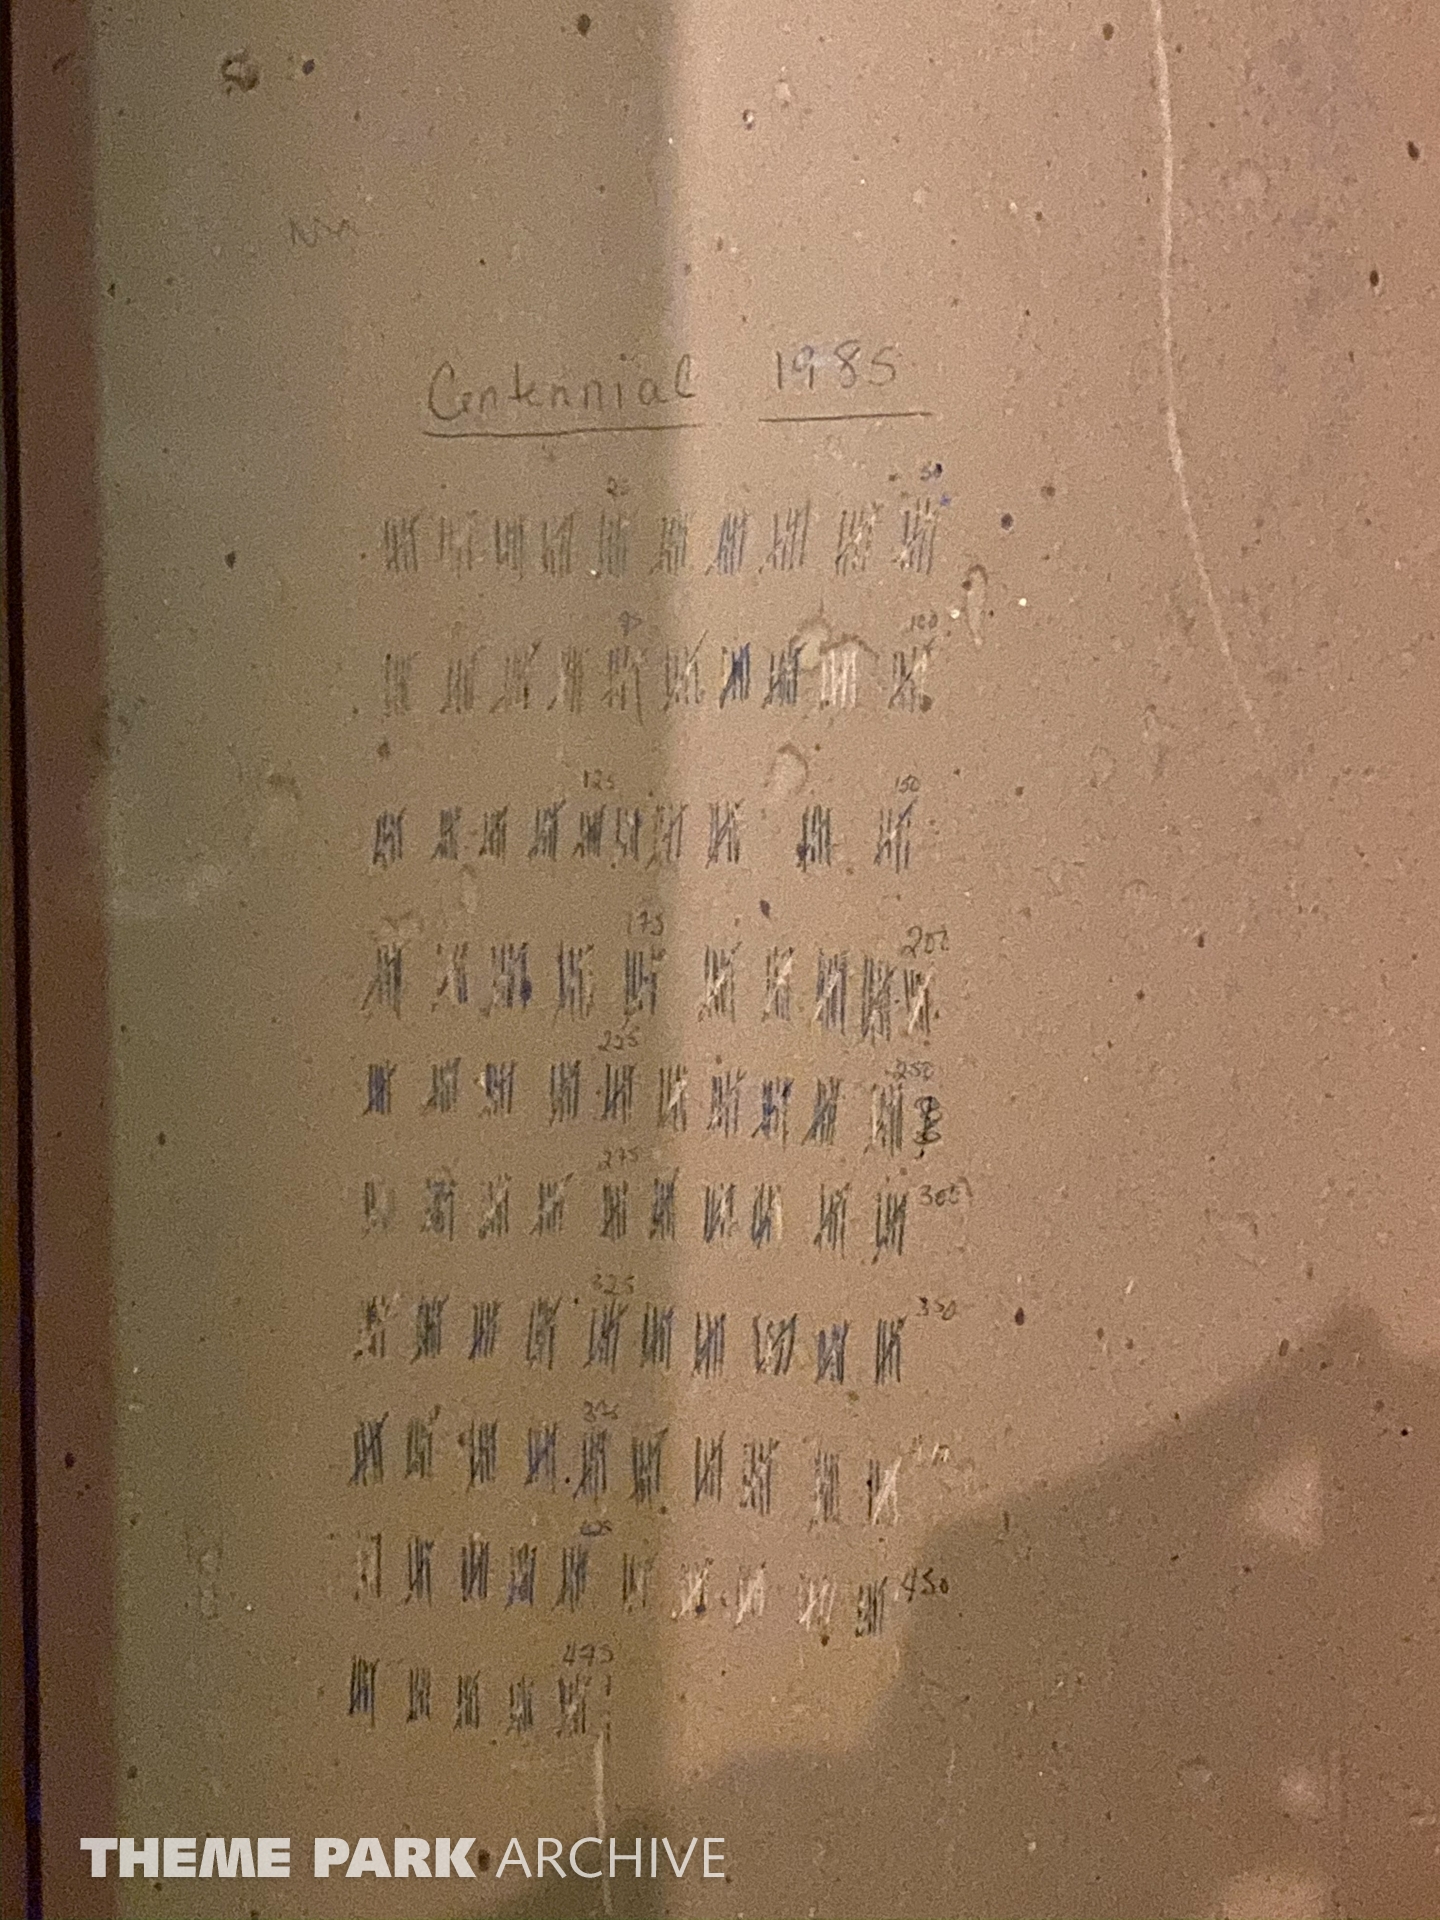 Centennial 1985
25 50
75 100
125 150
175 200
225 250
275 300
325 350
375
425 450
475
THEME PARK ARCHIVE